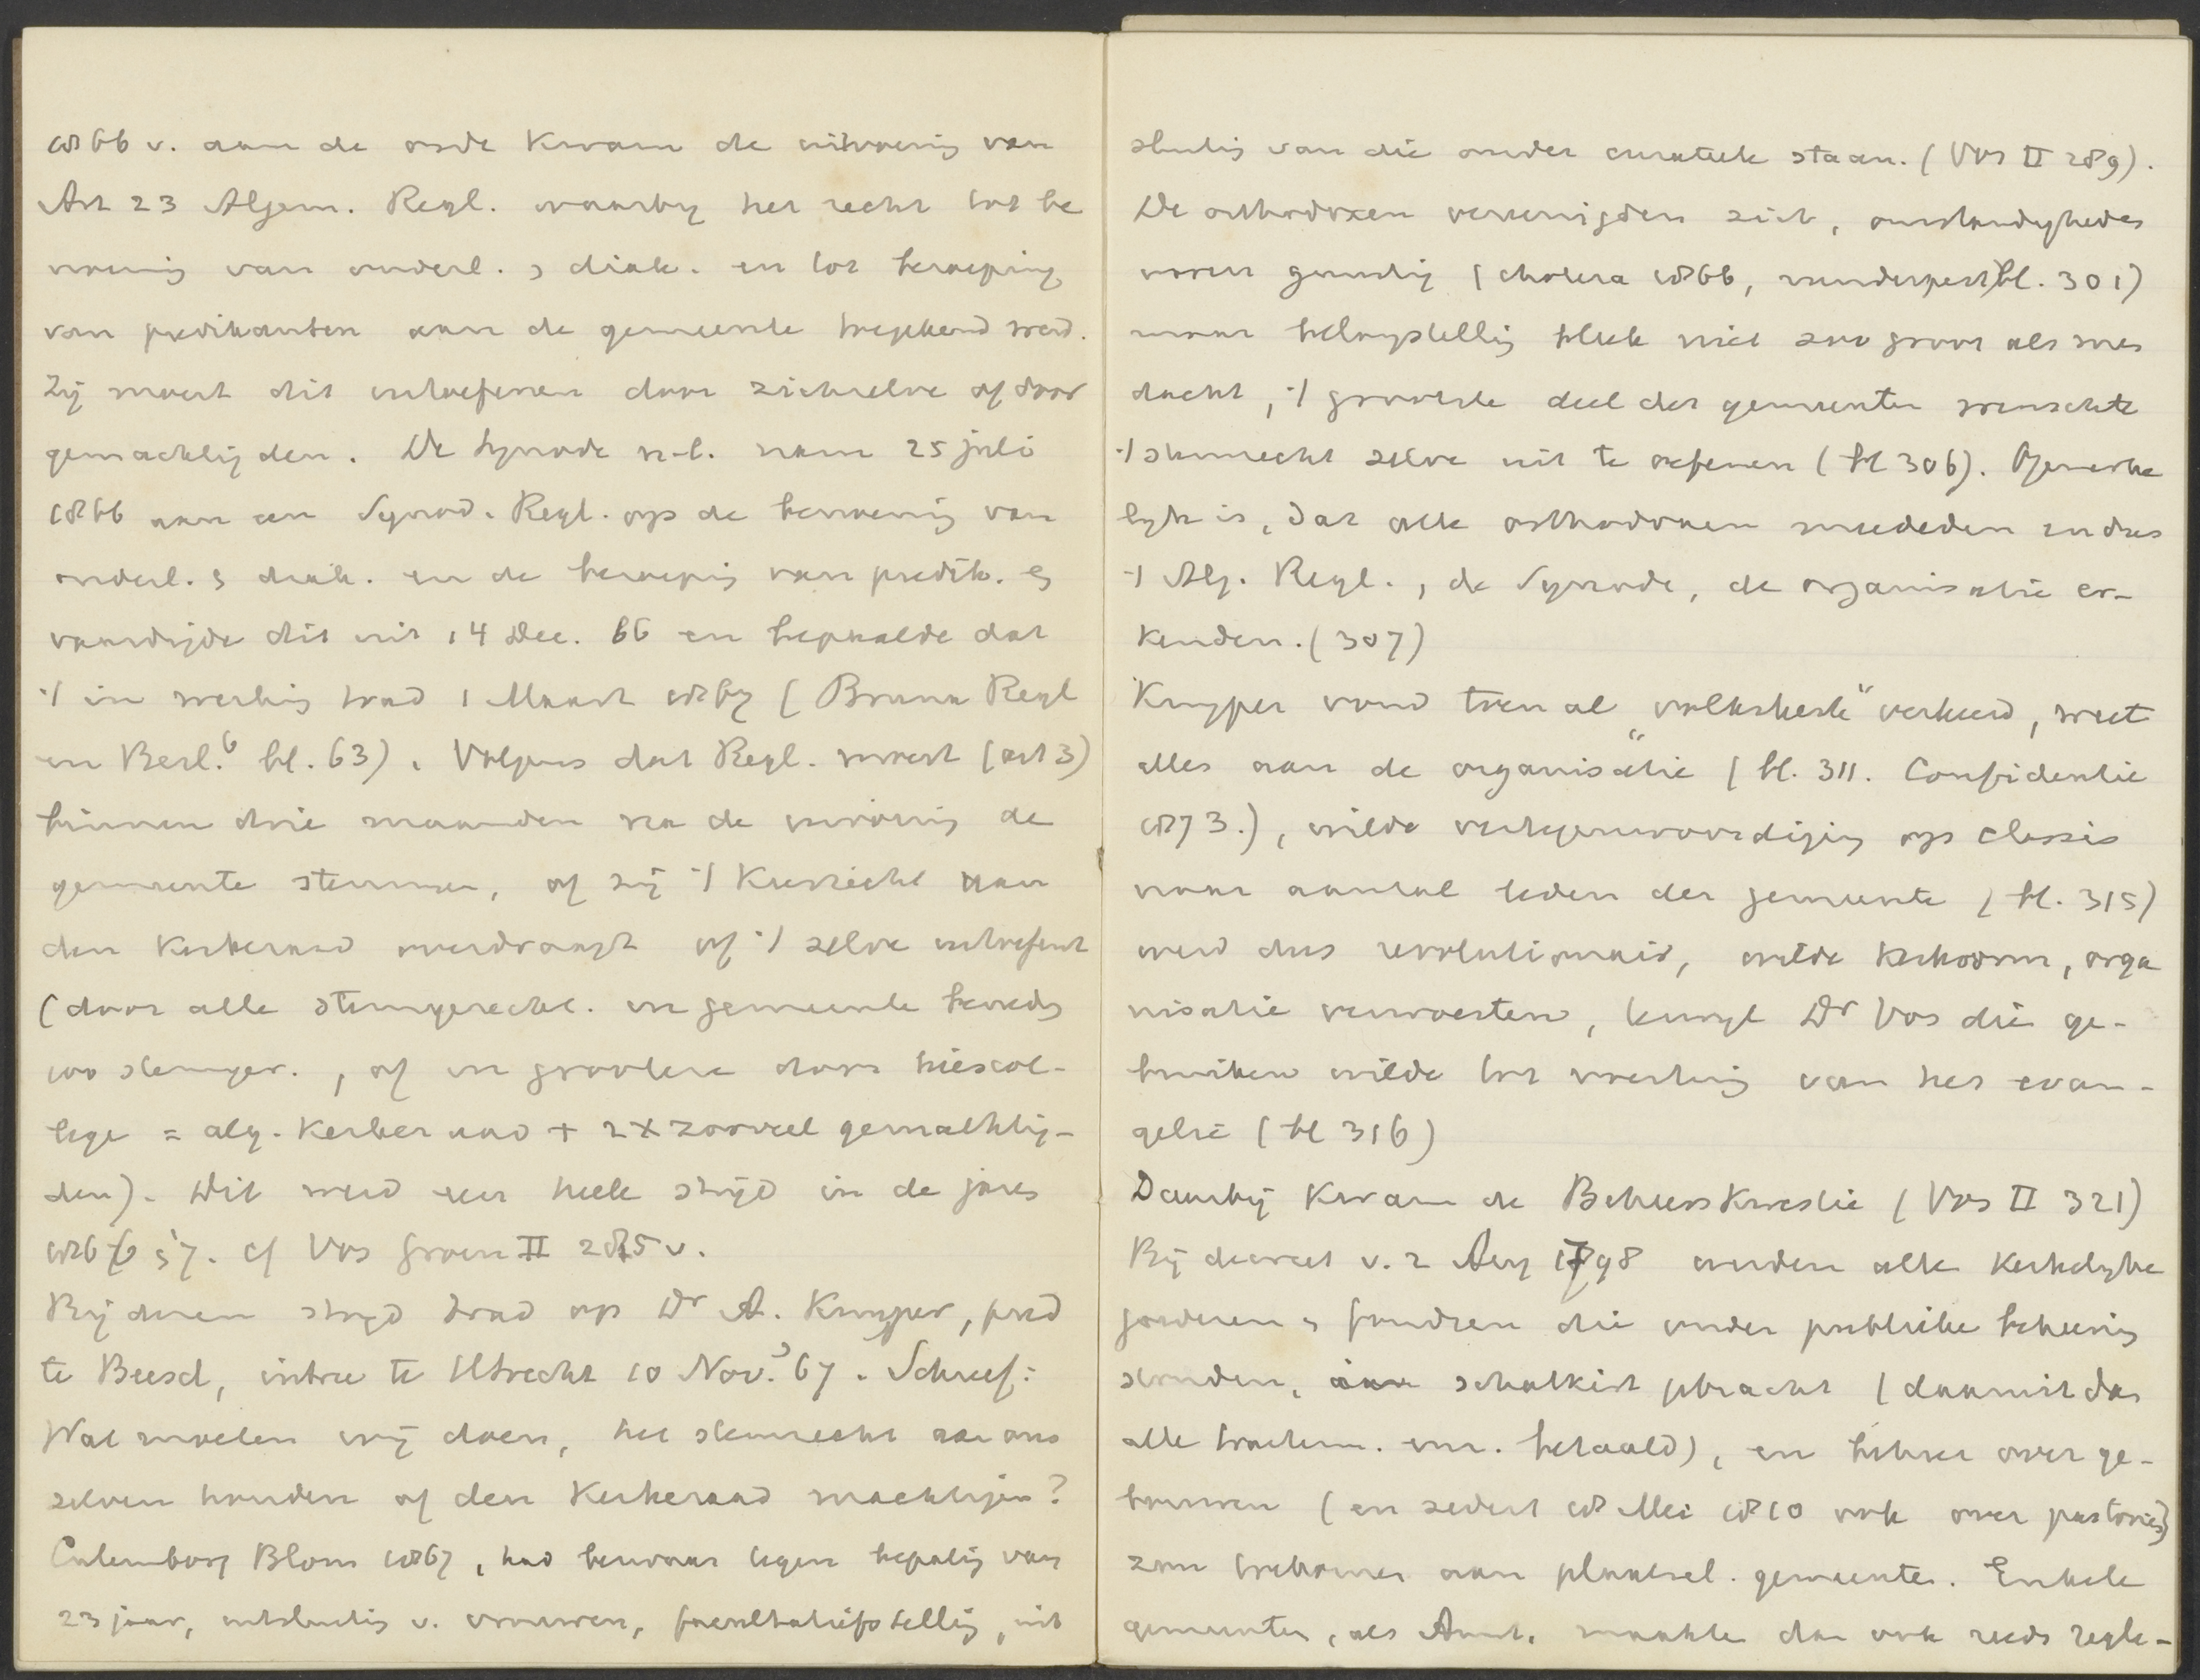 1866 v. aan de orde kwam de uitvoering van
Art 23 Algem. Regl. waarbij het recht tot be
noeming van ouderl. & diak. en tot beroeping
van predikanten aan de gemeente toegekend werd.
Zij moest dit uitoefenen door zichzelve of door
gemachtigden. De Synode n-l. nam 25 juli
1866 aan een Synod. Regl. op de benoeming van
ouderl. & diak. en de beroeping van predik. &
vaardigde dit uit 14 Dec. 66 en bepaalde dat
't in werking trad 1 Maart 1867 (Bruna Regl
en Besl.6 bl. 63). Volgens dat Regl. moest (art 3)
binnen drie maanden na de invoering de
gemeente stemmen, of zij 't kiesrecht aan
den kerkeraad overdraagt of 't zelve uitoefent
(door alle stemgerecht. in gemeente beneden
100 stemger., of in grootere door kiescol-
lege = alg. kerkeraad + 2 x zooveel gemachtig-
den). Dit werd een heele strijd in de jaren
1866 57. cf Vos Groen II 285 v.
Bij dien strijd trad op Dr A. Kuyper, pred
te Beesd, intree te Utrecht 10 Nov. 67. Schreef:
Wat moeten wij doen, het stemrecht aan ons
zelven houden of den Kerkeraad machtigen?
Culemborg Blom 1867, had bezwaar tegen bepaling van
23 jaar, uitsluiting v. vrouwen, facultatiefstelling, uit
sluiting van die onder curateele staan. (Vos II 289).
De orthodoxen vereenigden zich, omstandigheden
waren gunstig (cholera 1866, runderpest) bl. 301)
maar belangstelling bleek niet zoo groot als men
dacht, 't grootste deel der gemeenten wenschte
't stemrecht zelve uit te oefenen (bl 306). Opmerke
lijk is, dat alle orthodoxen meededen en dus
't Alg. Regl., de Synode, de organisatie er-
kenden. (307)
Kuyper vond toen al "volkskerk" verkeerd, weet
alles aan de organisatie (bl. 311. Confidentie
1873.), wilde vertegenwoordiging op classis
naar aantal leden der gemeente (bl. 315)
werd dus revolutionair, wilde kerkvorm, orga
nisatie verwoesten, terwijl Dr Vos die ge-
bruiken wilde tot werking van het evan-
gelie (bl 316)
Daarbij kwam de Beheerskwestie (Vos II 321)
Bij decreet v. 2 Aug 1798 werden alle kerkelijke
goederen & fondsen die onder publieke beheering
stonden, aan schatkist gebracht (daaruit dan
alle tractem. enz. betaald), en beheer over ge-
bouwen (en sedert 18 Mei 1810 ook over pastorieën)
zou toekomen aan plaatsel. gemeenten. Enkele
gemeenten, als Amst. maakte dan ook reeds regle-